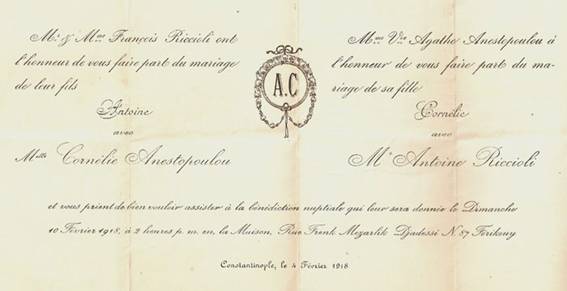 Mr. & Mme François Riccioli ont
l'honneur de vous faire part du mariage
de leur fils
Antoine
avec
Melle Cornélie Anestopoulou
A.C
Mme Vve Agathe Anestopoulou à
l'honneur de vous faire part du ma-
riage de sa fille
Cornélie
avec
Mr Antoine Riccioli
et vous prient de bien vouloir assister à la bénédiction nuptiale qui leur sera donnée le Dimanche
10 Février 1918, à 2 heures p. m. en, la Maison, Rue Frenk Mezarlik Djadessi N. 87 Férikeuy
Constantinople, le 4 Février 1918